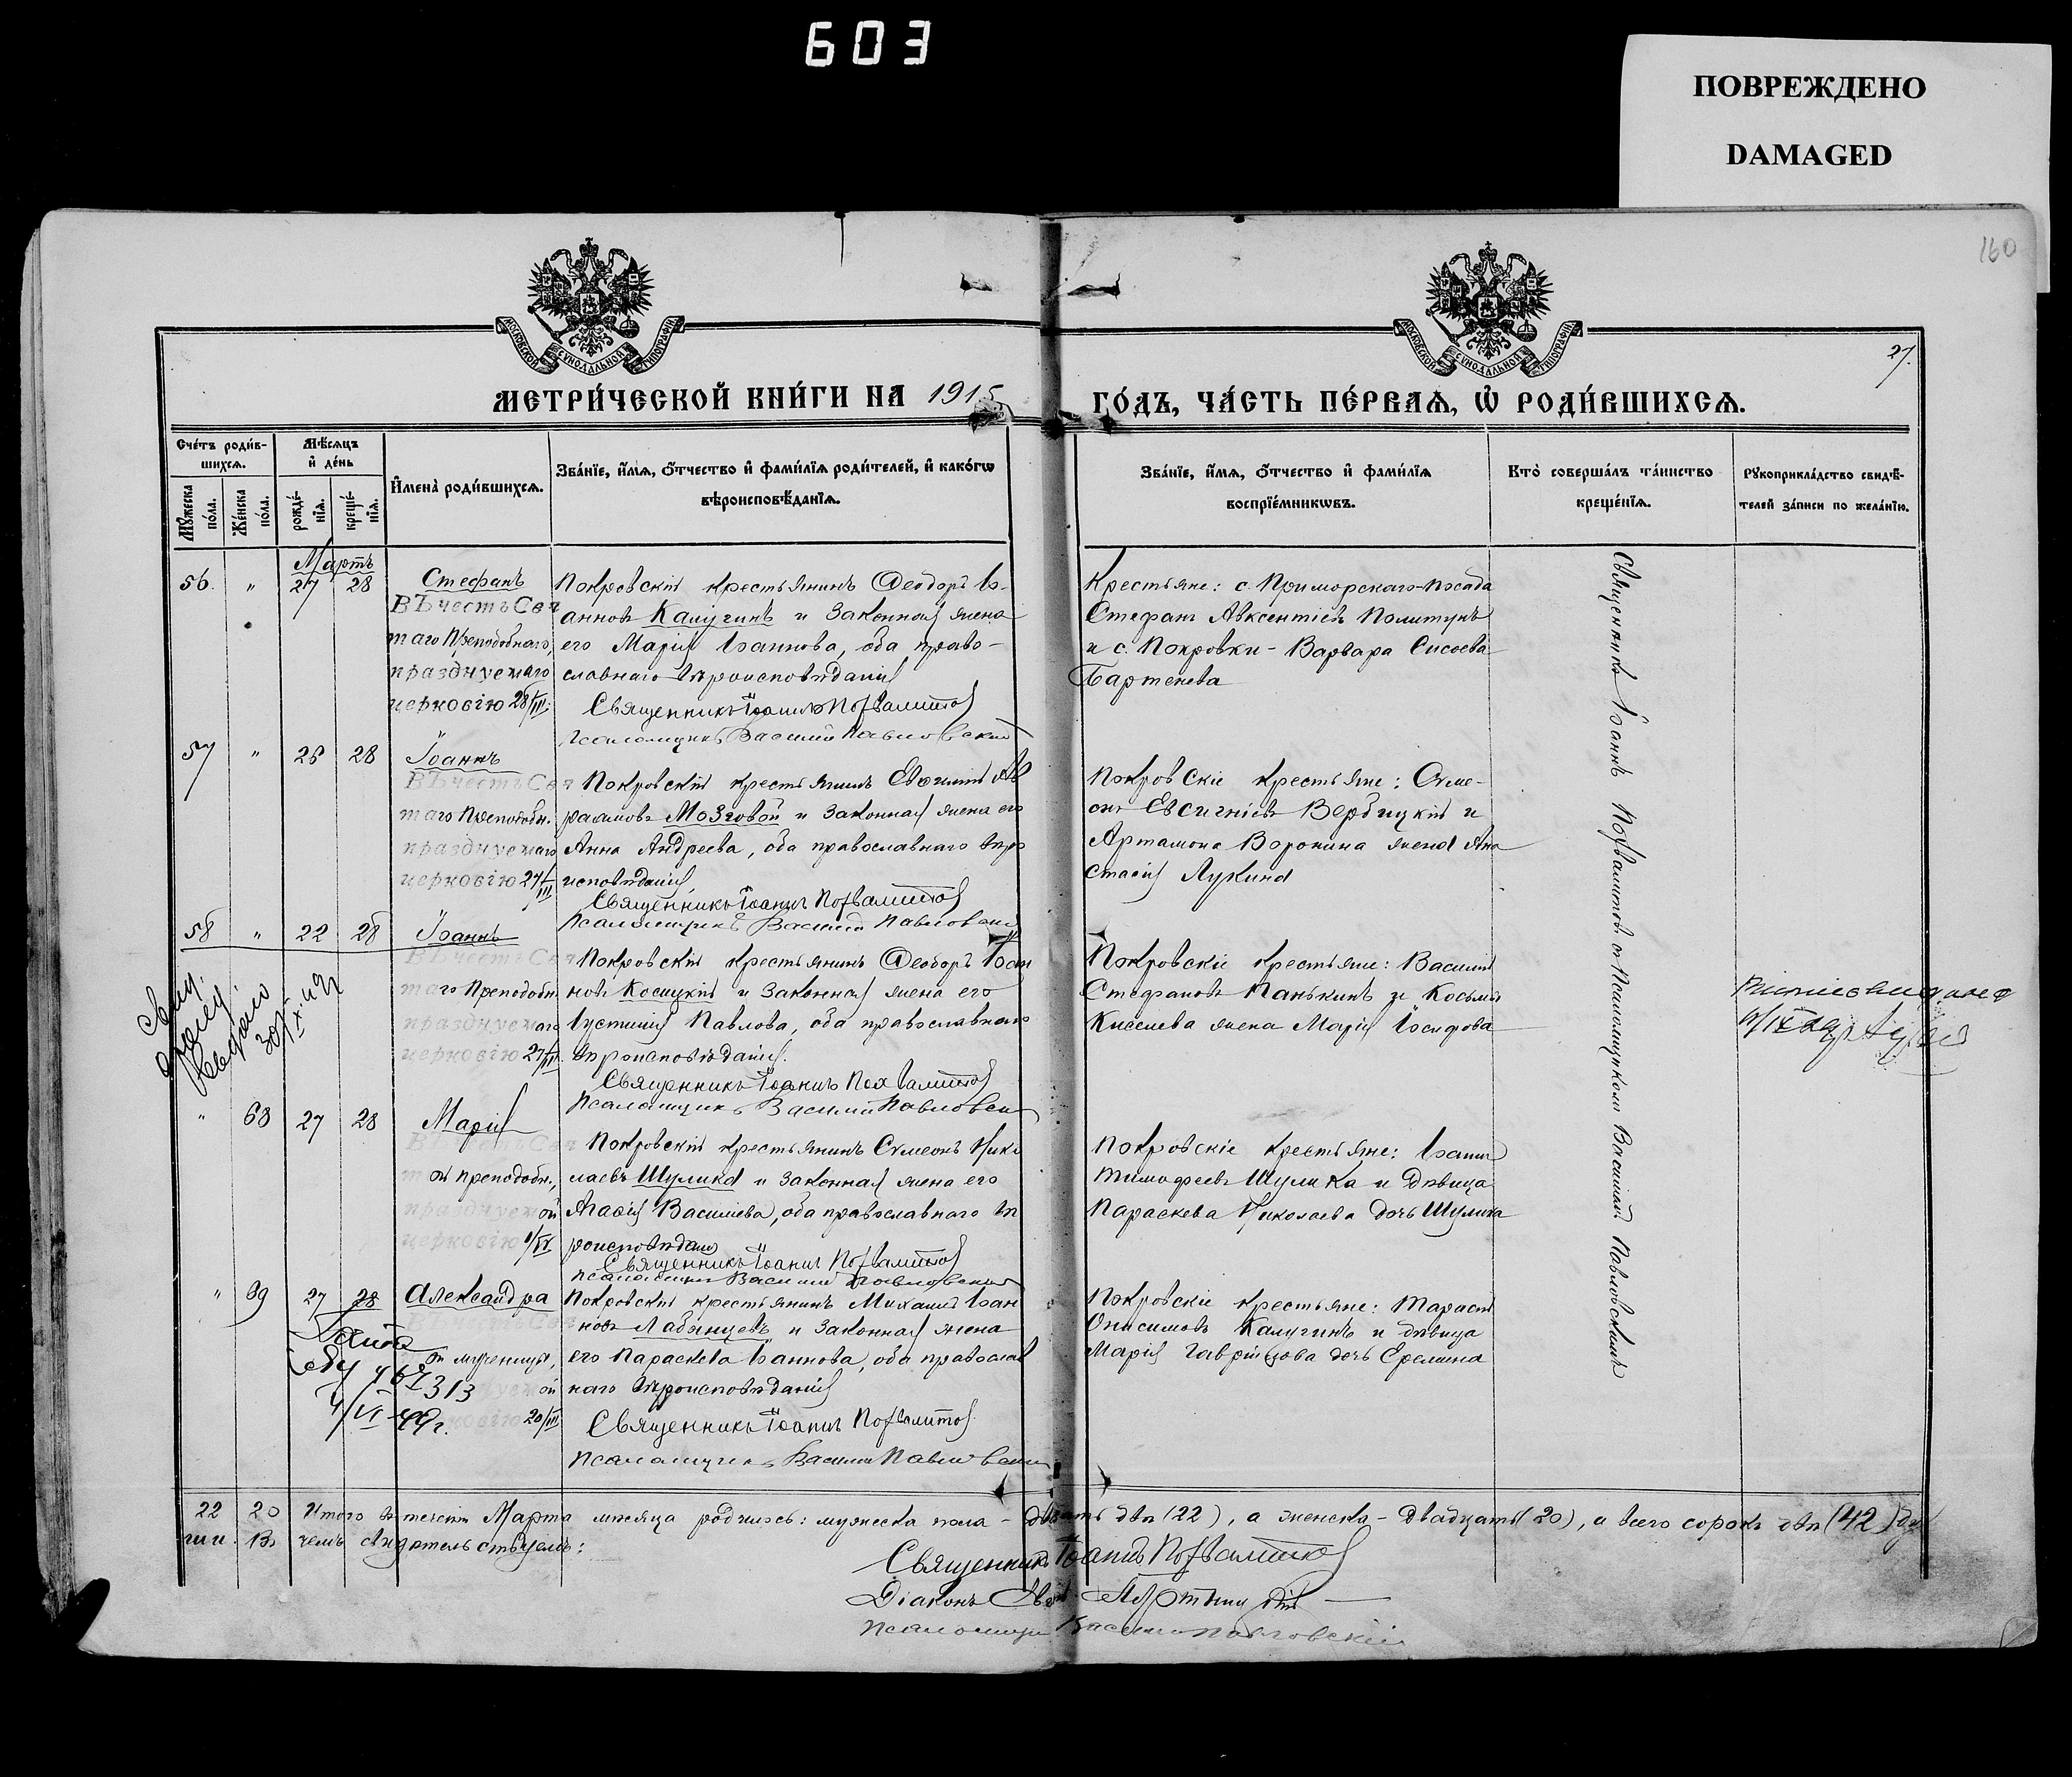 603
ПОВРЕЖДЕНО
DAMAGED
160
МОСКОВСКОЙ СѴНОДАЛЬНОЙ ТИПОГРАФІИ
МОСКОВСКОЙ СѴНОДАЛЬНОЙ ТИПОГРАФІИ
27.
МЕТРИ́ЧЕСКОЙ КНИ́ГИ НА 1915
ГО́ДЪ, ЧА́СТЬ ПЕ́РВАѦ, Ѡ҆ РОДИ́ВШИХСѦ.
Сче́тъ роди́в-
шихсѧ.
Мꙋ́жеска по́ла.
Же́нска по́ла.
Мѣ́сѧцъ
и҆ де́нь
рожде́-
нїѧ.
креще́-
нїѧ.
И҆мена̀ роди́вшихсѧ.
Зва́нїе, и҆́мѧ, ѻ҆́тчество и҆ фами́лїѧ роди́телей, и҆ како́гѡ
вѣроисповѣ́данїѧ.
Зва́нїе, и҆́мѧ, ѻ҆́тчество и҆ фами́лїѧ
воспрїе́мникѡвъ.
Кто̀ соверша́лъ та́инство
креще́нїѧ.
Рꙋкоприкла́дство свидѣ́-
телей за́писи по жела́нїю.
Мартъ
56. " 27 28 Стефанъ
Въ честь Свя
таго Преподобнаго,
празднуемаго
церковію 28/III.
Покровскій крестьянинъ Ѳеодоръ Іо-
анновъ Калугинъ и законная жена
его Марія Іоаннова, оба право-
славнаго вѣроисповѣданія
Священникъ Іоаннъ Похвалитовъ
Псаломщикъ Василій Павловскій
Крестьяне: с. Приморскаго-Посада
Стефанъ Авксентіевъ Политунъ
и с. Покровки - Варвара Сисоева
Бартенева
57 " 26 28 Іоаннъ
Въ честь Свя
таго Преподобн.
празднуемаго
церковію 27/III
Покровскій крестьянинъ Евѳимій Ав
раамовъ Мозговой и законная жена его
Анна Андреева, оба православнаго вѣро
исповѣданія
Священникъ Іоаннъ Похвалитовъ
Псаломщикъ Василій Павловскій
Покровскіе крестьяне: Симе-
онъ Евсигніевъ Вербицкій и
Артамона Воронина жена Ана
стасія Лукина
58 " 22 28 Іоаннъ
Въ честь Свя
таго Преподобн
празднуемаго
церковію 27/III
Покровскій крестьянинъ Ѳеодоръ Іоан
новъ Косицкій и законная жена его
Іустинія Павлова, оба православнаго
вѣроисповѣданія.
Священникъ Іоаннъ Похвалитовъ
Псаломщикъ Василій Павловскій
Покровскіе крестьяне: Василій
Стефановъ Панькинъ и Косьмы
Киселева жена Марія Іосифова
" 68 27 28 Марія
Въ честь Свя
той преподобн.,
празднуемой
церковію 1/IV
Покровскій крестьянинъ Симеонъ Нико
лаевъ Шулика и законная жена его
Агаѳія Василева, оба православнаго вѣ
роисповѣданія
Священникъ Іоаннъ Похвалитовъ
Псаломщикъ Василій Павловскій
Покровскіе крестьяне: Іоаннъ
Тимофеевъ Шулика и дѣвица
Параскева Николаева дочь Шулика
" 69 27 28 Александра
Въ честь Свя
ой мученицы,
ой
20/III
313
Покровскій крестьянинъ Михаилъ Іоан
новъ Лабинцевъ и законная жена
его Параскева Іоаннова, оба православ
наго вѣроисповѣданія
Священникъ Іоаннъ Похвалитовъ
Псаломщикъ Василій Павловскій
Покровскіе крестьяне: Тарасій
Онисимовъ Калугинъ и дѣвица
Марія Гавріилова дочь Еремина
Священникъ Іоаннъ Похвалитовъ съ Псаломщикомъ Василіемъ Павловскимъ
22 20 Итого въ теченіи Марта мѣсяца родилось: мужеска пола - двадцать два (22), а женска - двадцать (20), а всего сорокъ два (42) ду
ши. Въ чемъ свидѣтельствуемъ:
Священникъ Іоаннъ Похвалитовъ
Діаконъ
Псаломщикъ Василій Павловскій